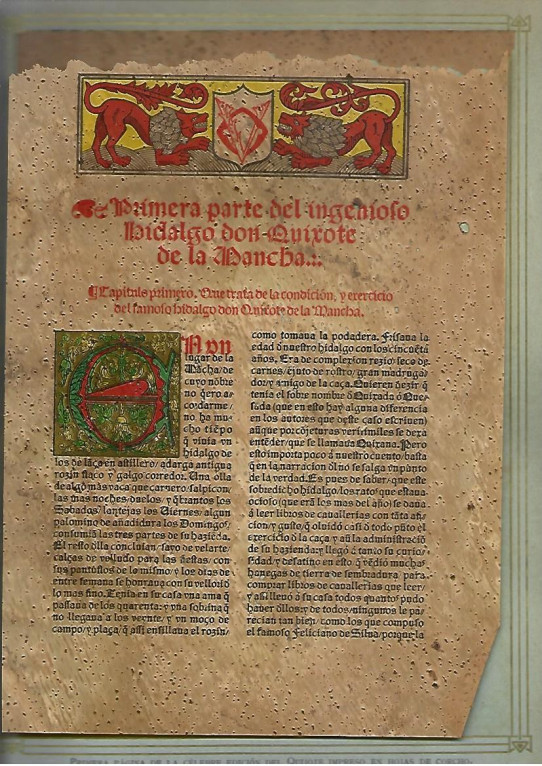 Primera parte del ingenioso
hidalgo don Quixote
de la Mancha.:.
Capitulo primero. Que trata de la condición, y exercicio
del famoso hidalgo don Quixote de la Mancha.
EN vn
lugar de la
Mācha/de
cuyo nōbre
no q̄ero a-
cordarme/
no ha mu-
cho tiēpo
q̄ viuia vn
hidalgo de
los de lāça en astillero/adarga antigua
rozin flaco y galgo corredor. Una olla
de algo màs vaca que carnero/salpicon
las màs noches/duelos y q̄brantos los
Sabados/lantejas los Viernes/algun
palomino de añadidura los Domingos/
consumiā las tres partes de su haziēda.
El resto dlla concluian/sayo de velarte
calças de velludo para las fiestas/con
sus pantuflos de lo mismo/y los dias de
entre semana se honraua con su vellorid
lo mas fino. Tenia en su casa vna ama q̄
passaua de los quarenta/y vna sobrina q̄
no llegaua a los veynte/y vn moço de
campo y plaça/q̄ assi ensillaua el rozin/
como tomaua la podadera. Frisaua la
edad d̄ nuestro hidalgo con los cincuēta
años. Era de complexion rezia/seco de
carnes/ējuto de rostro/gran madruga-
dor/y amigo de la caça. Quieren dezir q̄
tenia el sobre nombre d̄ Quixada ō Que-
sada (que en esto hay alguna diferencia
en los autores que deste caso escriuen)
aūque por cōjeturas verisimiles se dexa
entēder/que se llamaua Quixana. Pero
esto importa poco à nuestro cuento/basta
q̄ en la narracion dl no se salga vn punto
de la verdad. Es pues de saber/que este
sobredicho hidalgo/los ratos que estaua
ocioso (que erā los mas del año) se daua
à leer libros de cauallerias con tāta afi-
cion/y gusto/q̄ oluidó casi d̄ todo pūto el
exercicio d̄ la caça/y aū la administració
de su hazienda: y llegó à tanto su curio-
sidad/y desatino en esto/q̄ vēdió muchas
hanegas de tierra de sembradura para
comprar libros de cauallerias que leer/
y assi lleuó à su casa todos quantos pudo
hauer dllos: y de todos/ningunos le pa-
recian tan bien/como los que compuso
el famoso Feliciano de Silua/porque la
Primera página de la célebre edición del Quijote impreso en hojas de corcho.